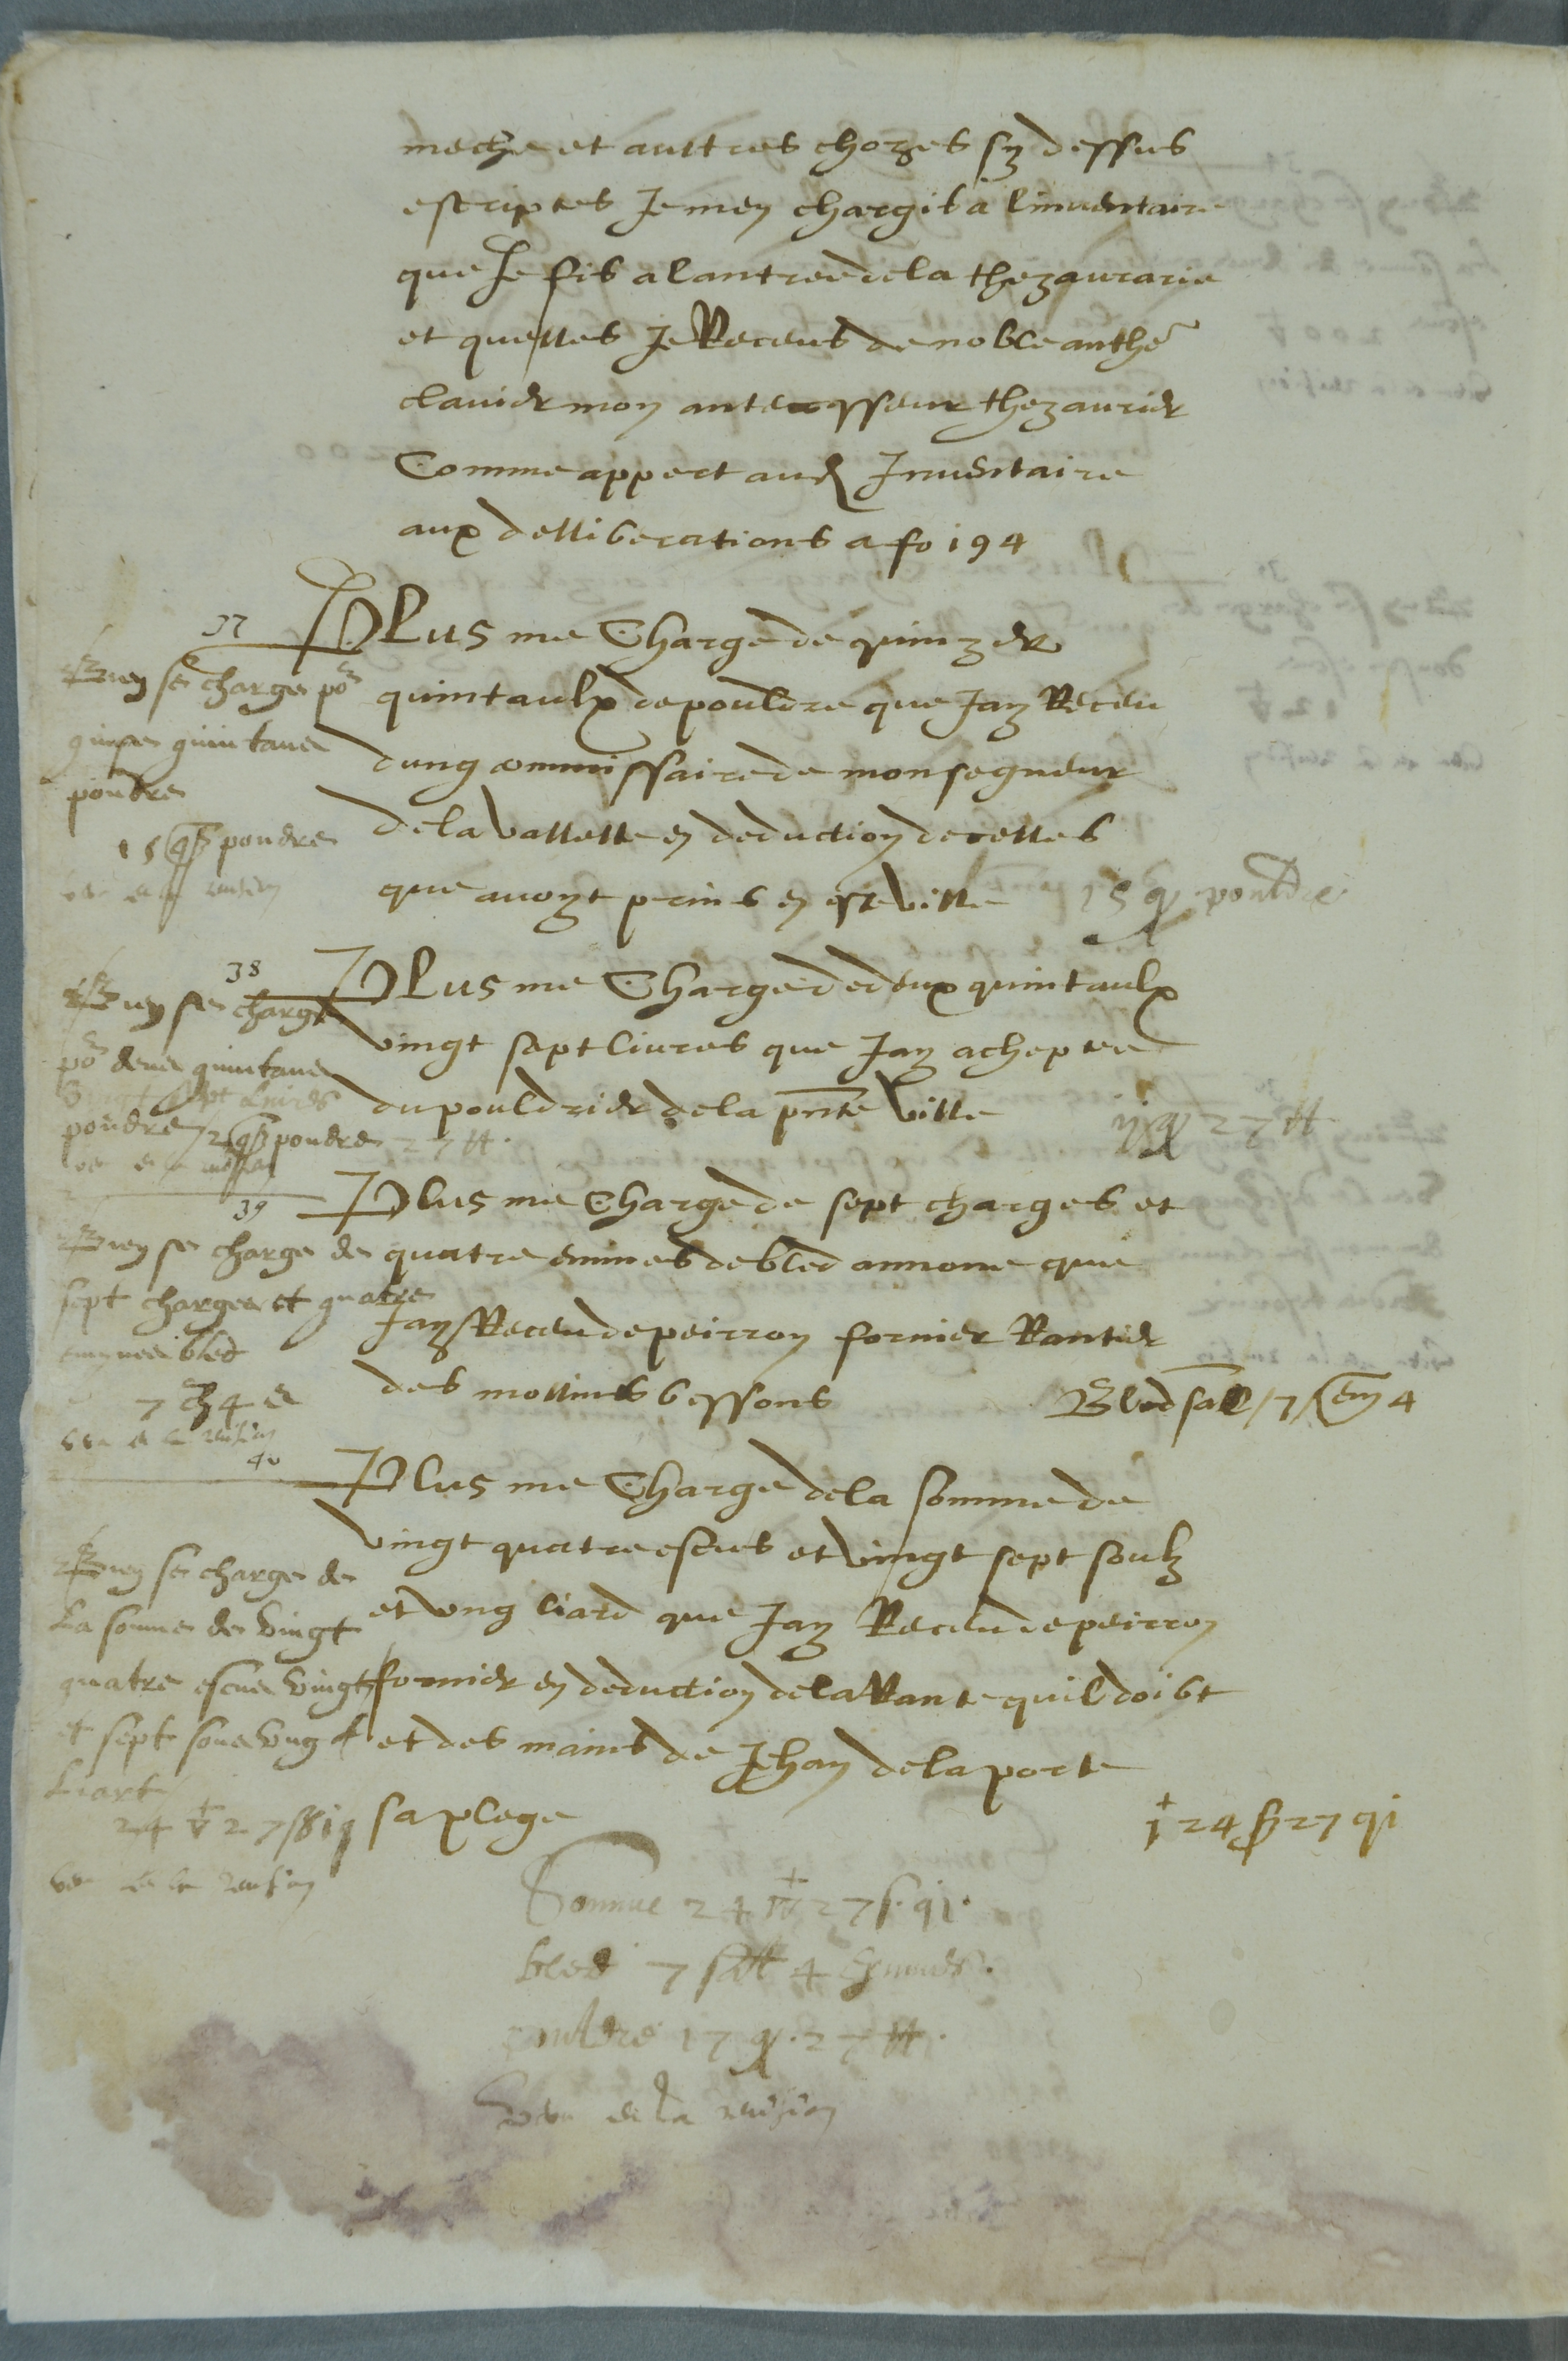 meche et auttres chozes sy dessus
escriptes Je mey chargis a linventaire
que Je fis a lantree de la thezaurarie
et quelles Je Receus de noble anthe
clavier moy antecesseur thezaurier
Comme appert aud Inventaire
aux delliberations a fo 194
37
PLus me Charge de quinze
quintaulx de pouldre que Jay Receu
dung commissaire de monsegneur
de la vallette ey deduction de celles
que avoyt prins ey este ville 15 q pouldre
Biey se charge po
quinse quintaus
poudre
15 q poudre
veu a la revision
38
PLus me Charge de deux quintaulx
vingt sept livres que Jay acheptee
du pouldrier de la pnte ville ij q 27 ll
Biey se charge
po deus quintaus
vingt sept livres
poudre 2 q poudre 27 ll.
39
Plus me Charge de sept charges et
quatre emines de bled annone que
Jay Receu de peirroy fornier Rantier
des mollins bessons Bled sal 7 em 4
Biey se charge de
sept charges et quatre
bled
7 ch 4 e
veu a la revision
40
Plus me Charge de la somme de
vingt quatre escus et vingt sept soulz
et ung liard que Jay Receu de peirroy
fornier ey deduction de la Rante quil doibt
et des mains de Jehay de la porte
sa plege 24 s 27 qi
Biey se charge de
La somme de vingt
quatre escus vingt
et sept sous ung
Liart
24 v 27 s 1 q
veu a la revision
Somme 24 27 s. qi.
bled 7 sall 4 Eymines.
pouldre 17 q. 27 ll.
Veu a la revision